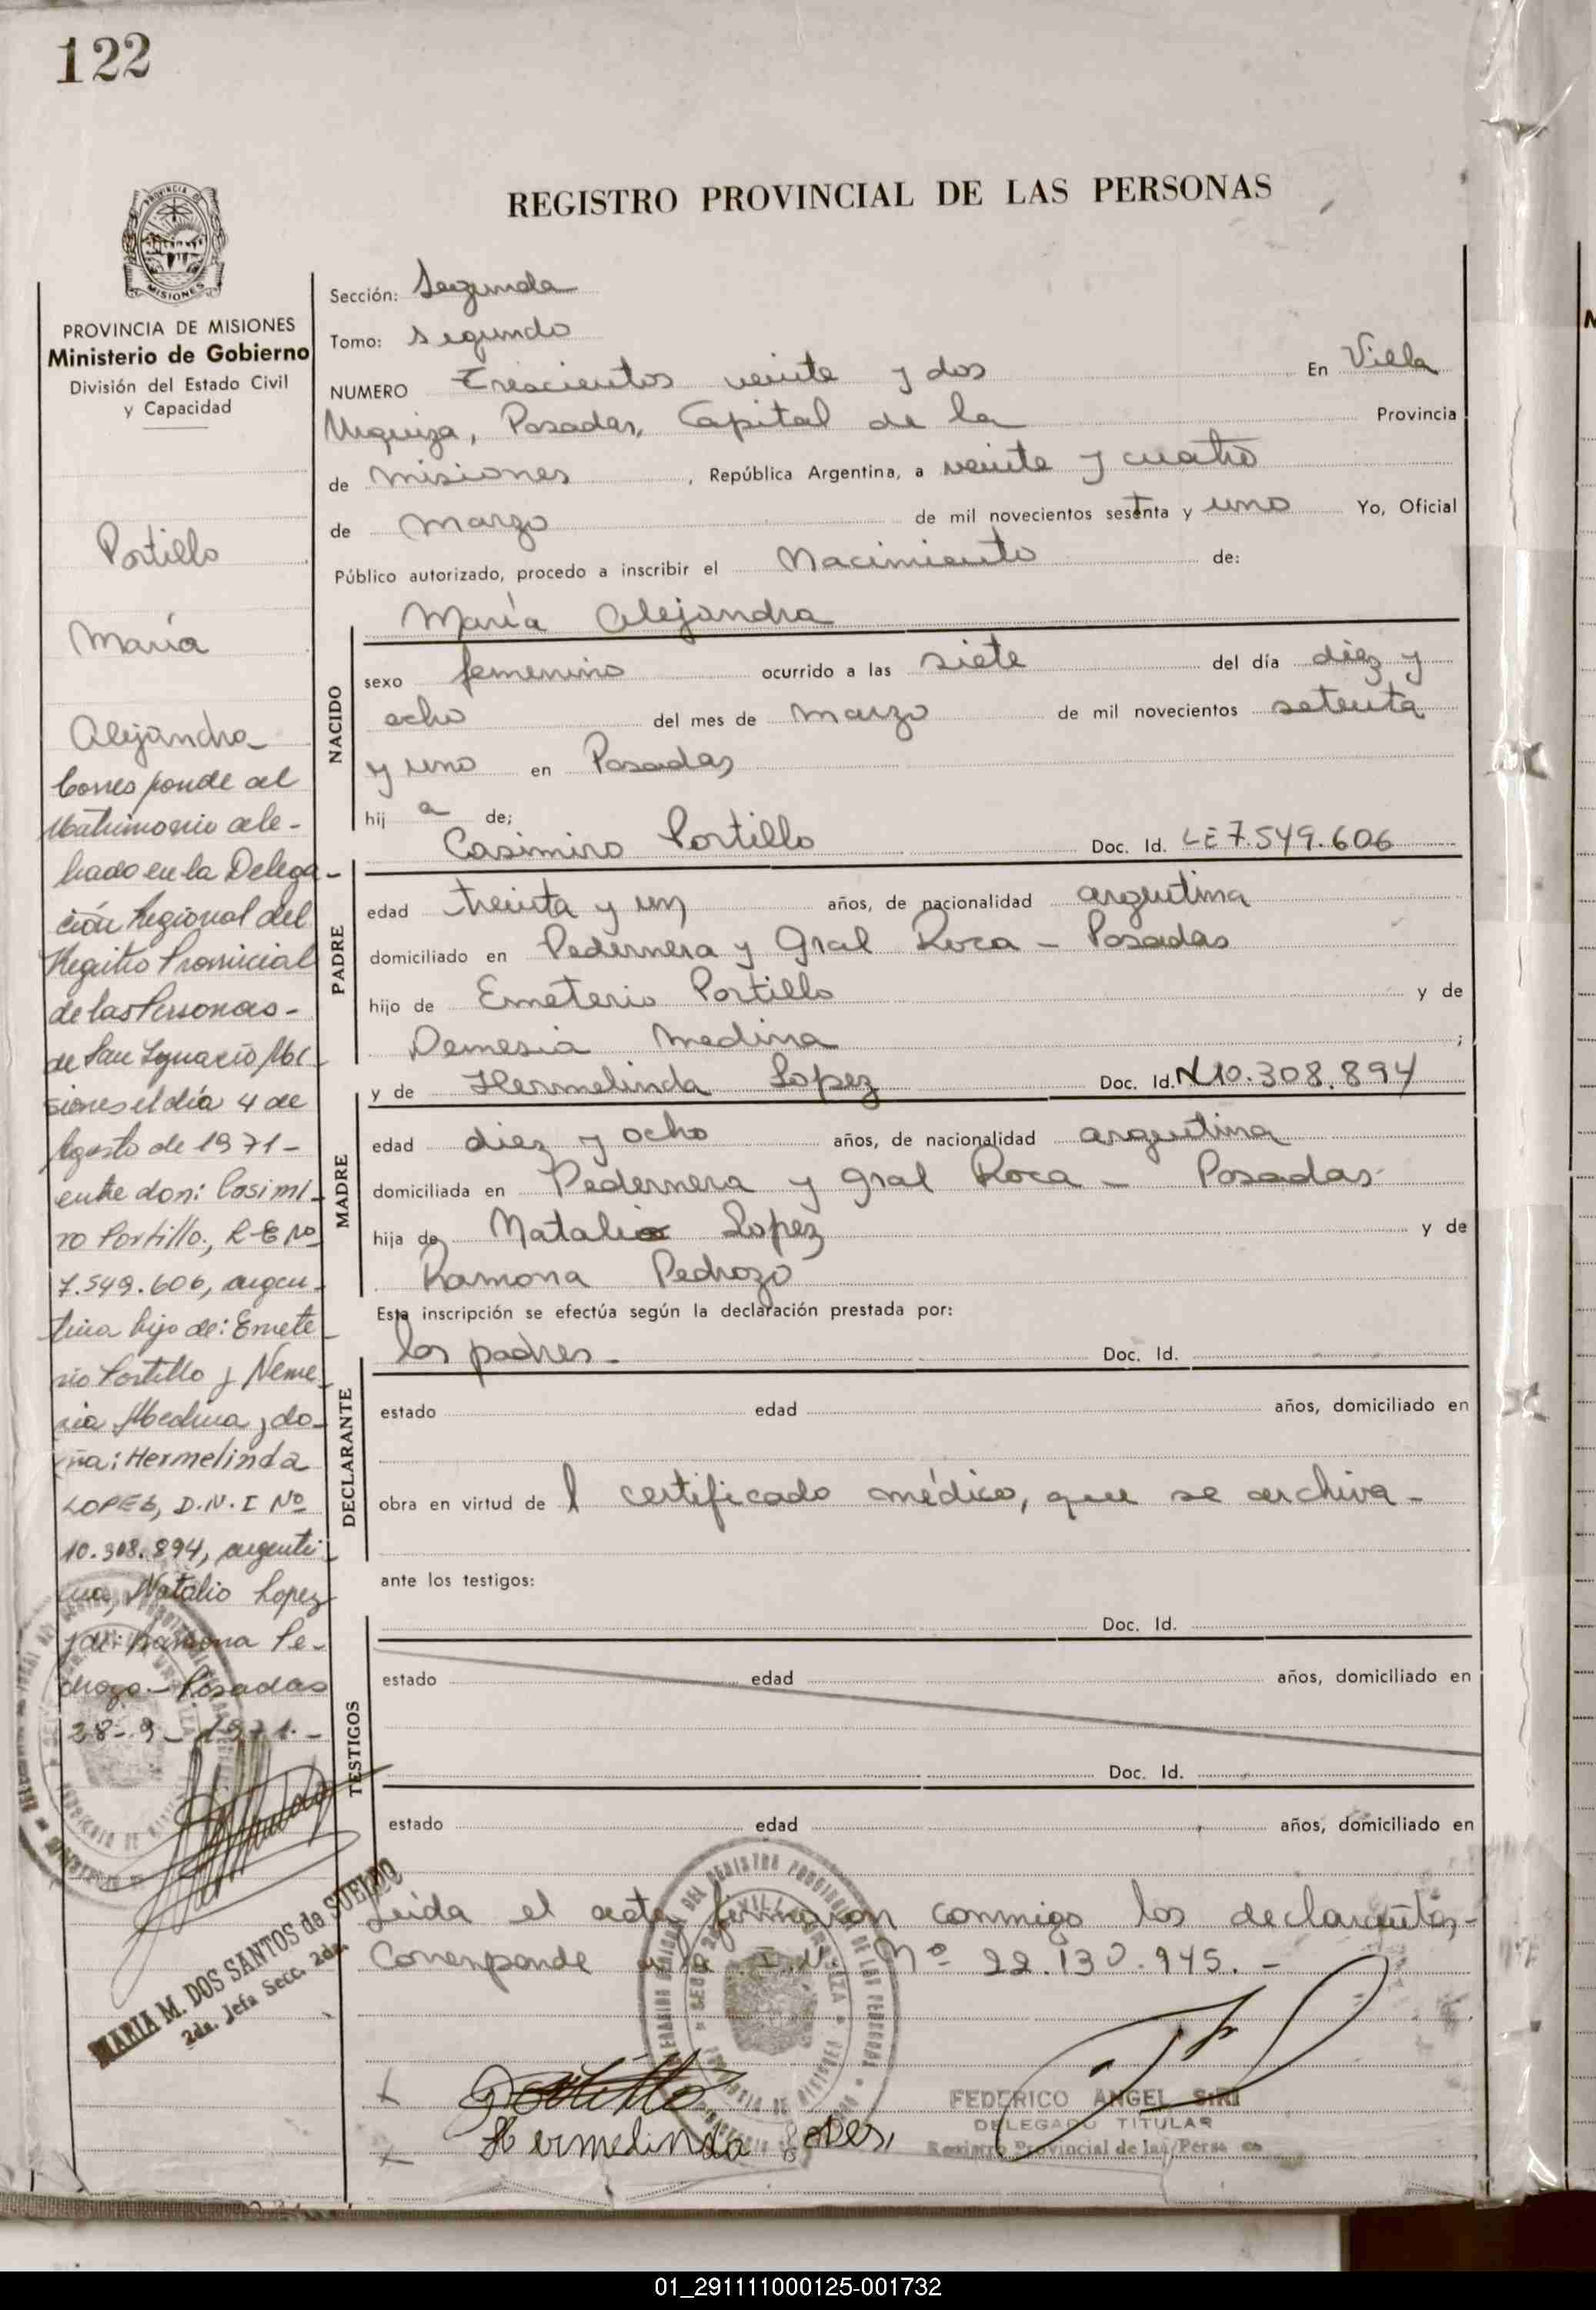 122
PROVINCIA DE
MISIONES
REGISTRO PROVINCIAL DE LAS PERSONAS
PROVINCIA DE MISIONES
Ministerio de Gobierno
División del Estado Civil
y Capacidad
Portillo
María
Alejandra
Corresponde al
Matrimonio cele-
brado en la Delega-
ción Regional del
Registro Provincial
de las Personas-
de San Ignacio Mi-
siones el día 4 de
Agosto de 1971-
entre don: Casimi-
ro Portillo, L-E Nº
7.549.606, argen-
tino hijo de: Emete-
rio Portillo y Neme-
sia Medina y do-
ña: Hermelinda
LOPEZ, D.N.I Nº
10.308.894, argenti-
na, Natalio Lopez
y de: Ramona Pe-
drozo - Posadas
28-9-1971.-
MARIA M. DOS SANTOS de SUELDO
2da. Jefa Secc. 2da.
Sección: Segunda
Tomo: segundo
NUMERO Trescientos veinte y dos En Villa
Urquiza, Posadas, Capital de la Provincia
de Misiones, República Argentina, a veinte y cuatro
de Marzo de mil novecientos setenta y uno Yo, Oficial
Público autorizado, procedo a inscribir el Nacimiento de:
María Alejandra
NACIDO
sexo femenino ocurrido a las siete del día diez y
ocho del mes de Marzo de mil novecientos setenta
y uno en Posadas
hij a de;
Casimiro Portillo Doc. Id. LE 7.549.606
PADRE
edad treinta y un años, de nacionalidad argentina
domiciliado en Pedernera y Gral Roca - Posadas
hijo de Emeterio Portillo y de
Demesia Medina ;
y de Hermelinda Lopez Doc. Id. N10.308.894
MADRE
edad diez y ocho años, de nacionalidad argentina
domiciliada en Pedernera y Gral Roca - Posadas
hija de Natalio Lopez y de
Ramona Pedrozo
Esta inscripción se efectúa según la declaración prestada por:
los padres- Doc. Id.
DECLARANTE
estado edad años, domiciliado en
obra en virtud de l certificado médico, que se archiva-
ante los testigos:
Doc. Id.
TESTIGOS
estado edad años, domiciliado en
Doc. Id.
estado edad años, domiciliado en
Leida el acta, firmaron conmigo los declarantes,-
Corresponde a la I.N. Nº 22.130.945.-
Portillo
Hermelinda Lopes,
FEDERICO ANGEL SIRI
DELEGADO TITULAR
Registro Provincial de las Personas
01_291111000125-001732